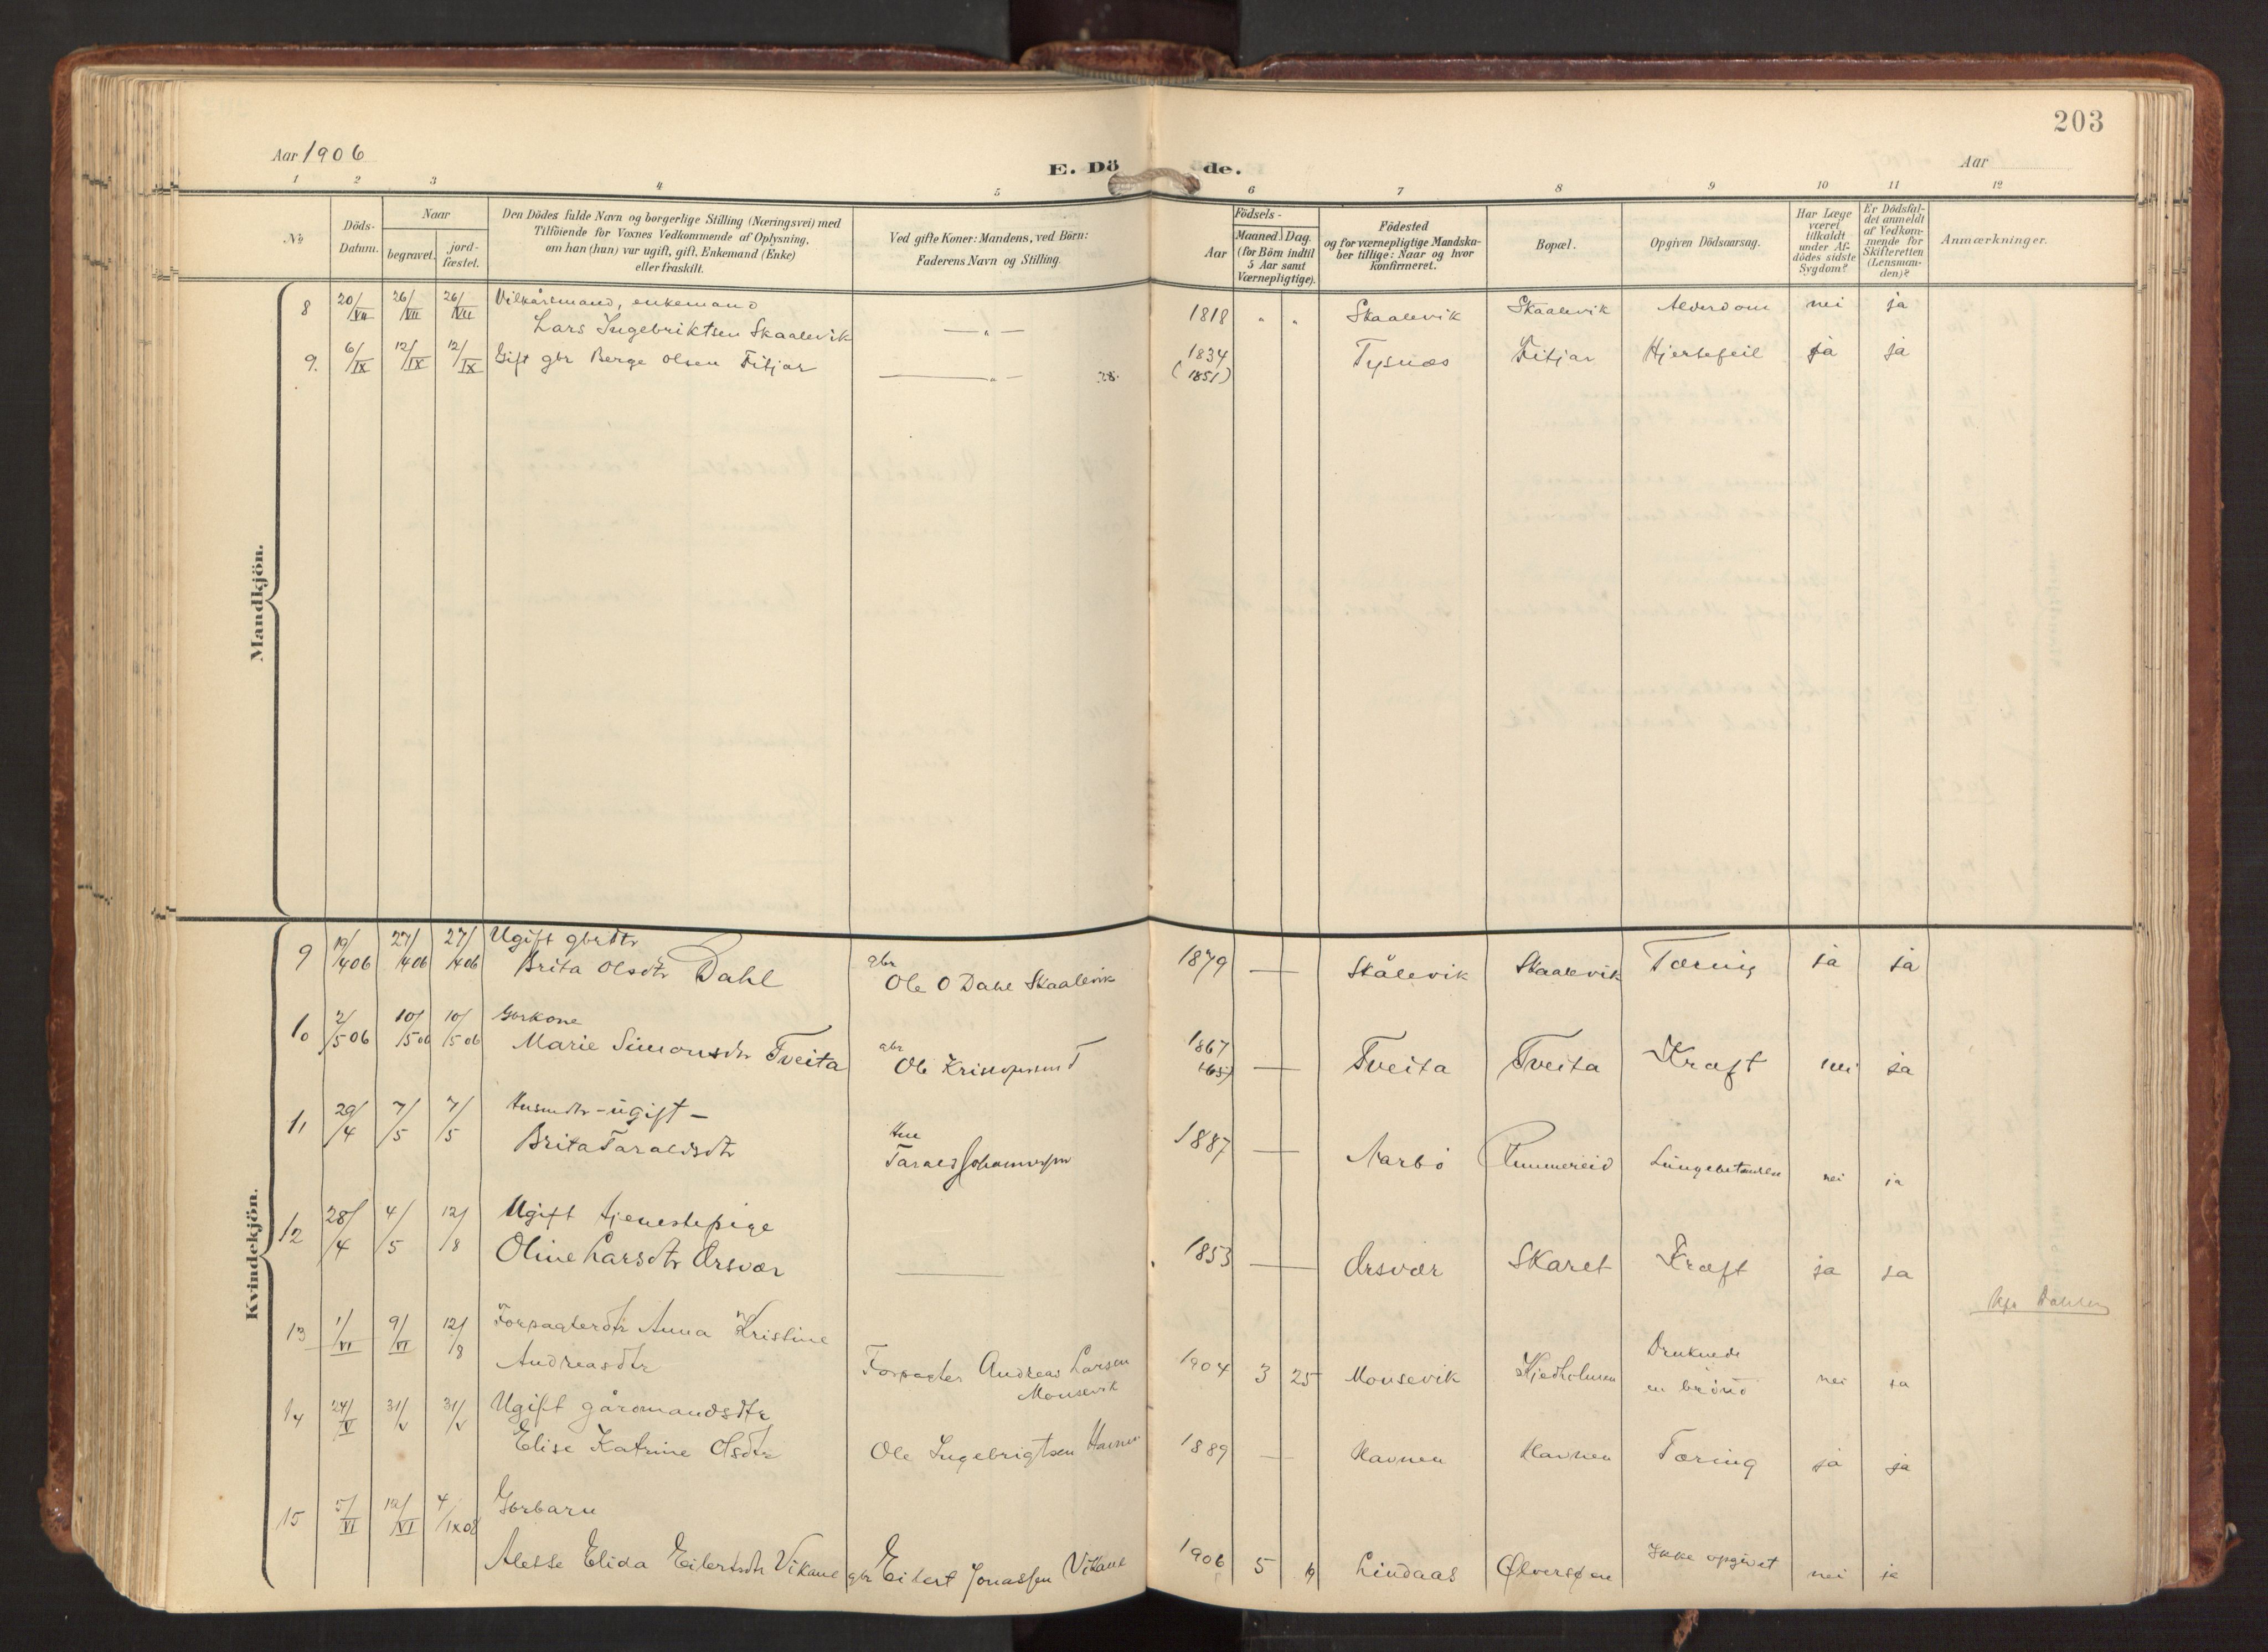 203
Aar 1906
E. Dö de.
Aar
1 2 3 4 5 6 7 8 9 10 11 12
№
Döds-
Datum.
Naar
begravet.
jord-
fæstet.
Den Dödes fulde Navn og borgerlige Stilling (Næringsvei) med
Tilföiende for Voxnes Vedkommende af Oplysning,
om han (hun) var ugift, gift, Enkemand (Enke)
eller fraskilt.
Ved gifte Koner: Mandens, ved Börn:
Faderens Navn og Stilling.
Födsels-
Aar
Maaned. Dag.
(for Börn indtil
5 Aar samt
Værnepligtige).
Födested
og for værnepligtige Mandska-
ber tillige: Naar og hvor
konfirmeret.
Bopæl.
Opgiven Dödsaarsag.
Har Læge
været
tilkaldt
under Af-
dödes sidste
Sygdom?
Er Dödsfal-
det anmeldt
af Vedkom-
mende for
Skifteretten
(Lensman-
den)?
Anmærkninger.
Mandkjön.
8 20/VII 26/VII 26/VII Vilkårsmand, enkemand
Lars Ingebriktsen Skaalevik — " — 1818 " " Skaalevik Skaalevik Alderdom nei ja
9. 6/IX 12/IX 12/IX Gift gbr Berge Olsen Fitjar — " — 28. 1834 Tysnæs Fitjar Hjertefeil ja ja
(1851)
Kvindekjön.
9 19/4 06 27/4 06 27/4 06 Ugift gbrdtr
Brita Olsdtr Dahl gbr Ole O Dahl Skaalevik 1879 — Skålevik Skaalevik Tæring ja ja
10 2/5 06 10/5 06 10/5 06 Gbrkone
Marie Simonsdtr Tveita gbr Ole T 1867 — Tveita Tveita Kræft nei ja
(65)
11 29/4 7/5 7/5 Husmdtr - ugift -
Brita Taraldsdtr Hm Tarald Johannessen 1887 — Aarbö Rummereid nei ja
12 28/4 4/5 12/8 Ugift tjenestepige
Oline Larsdtr Ørsvær — 1853 — Ørsvær Skaret Kræft ja ja
13 1/VI 9/VI 12/8 Forpagterdtr Anna Kristine
Andreasdtr Forpagter Andreas Larsen
Monsevik 1904 3 25 Monsevik Kjedholmen Druknede
en brönd nei ja
14 24/V 31/V 31/V Ugift gårdmandsdtr
Elise Katrine Olsdtr Ole Ingebrigtsen Havnen 1889 — Havnen Havnen Tæring ja ja
15 5/VI 12/VI 4/IX 08 Gbrbarn
Alette Elida Eilertsdtr Vikane gbr Eilert Jonassen Vikane 1906 5 Lindaas Ølversøen Ikke opgivet nei ja